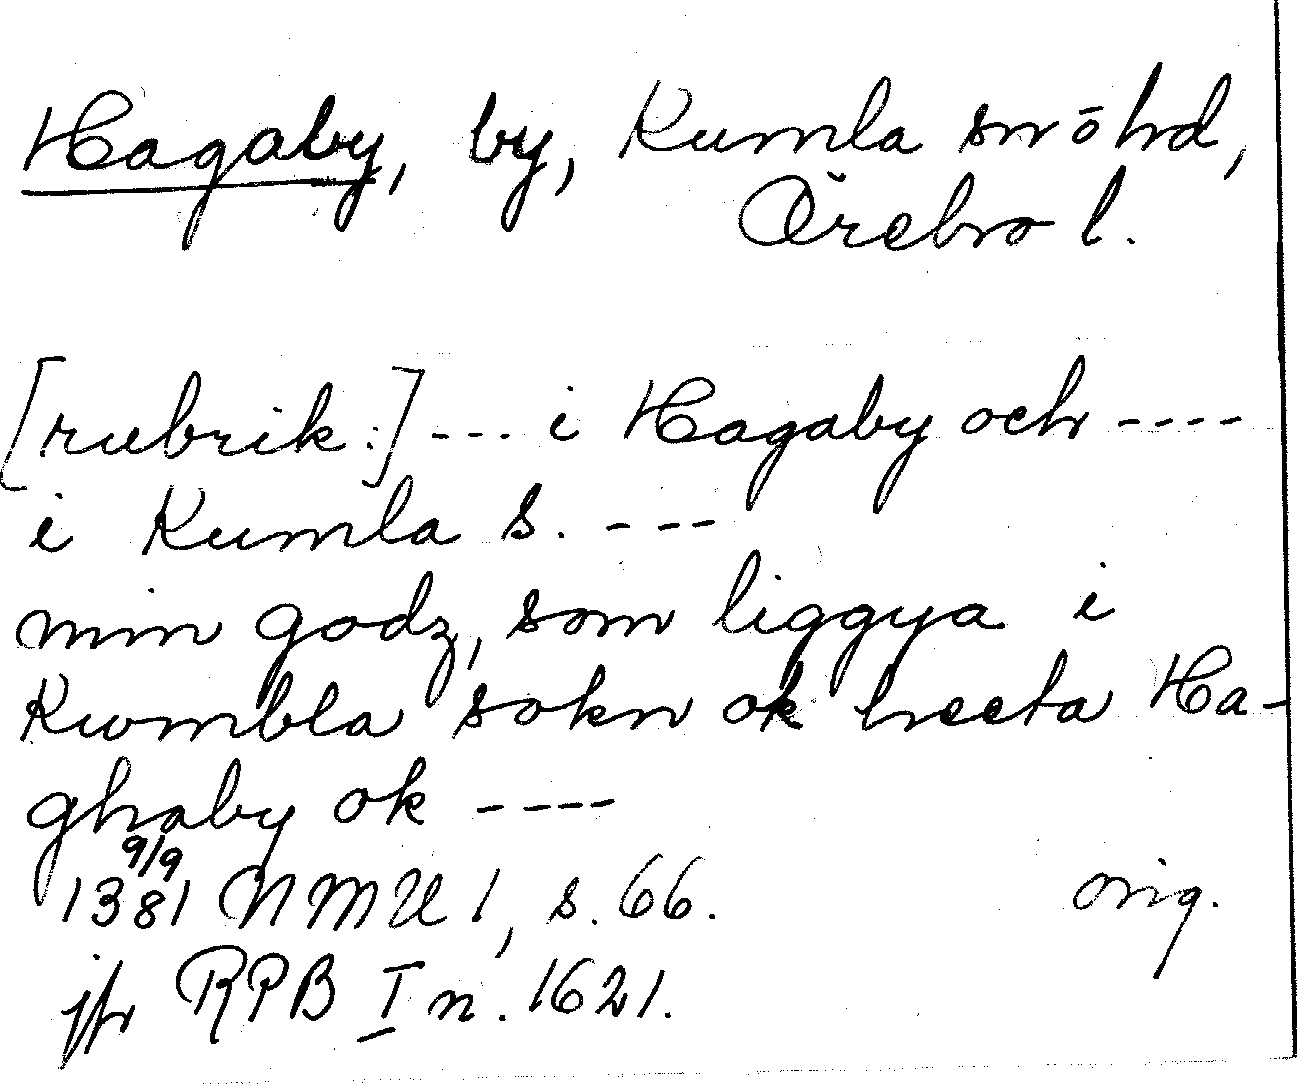 Hagaby, by, Kumla sn o hd,
Örebro l.
[rubrik:] --- i Hagaby och ----
i Kumla s. ---
min godz, som liggya i
Kwmbla sokn ok heeta Ha-
ghaby ok ----
9/9
1381 NMU 1, s. 66. orig.
jfr RPB I n. 1621.